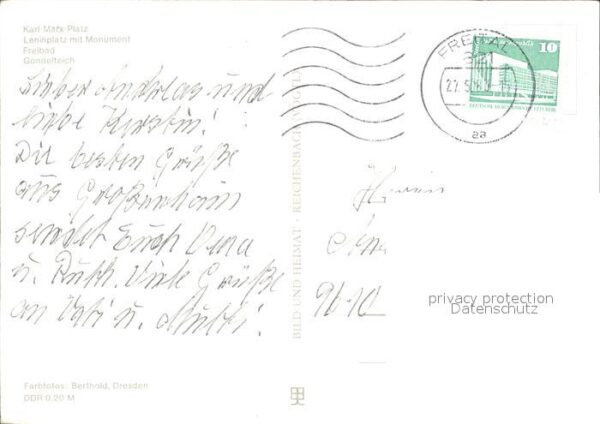 Karl-Marx-Platz
Leninplatz mit Monument
Freibad
Gondelteich
Lieber Andreas und
liebe Kerstin!
Die besten Grüße
aus Großenhain
sendet Euch Oma
u. Ruth. Viele Grüße
an Vati u. Mutti.
Farbfotos: Berthold, Dresden
DDR 0.20 M
BILD UND HEIMAT · REICHENBACH
FREITAL
aa
10
DEUTSCHE DEMOKRATISCHE REPUBLIK
9610
privacy protection
Datenschutz